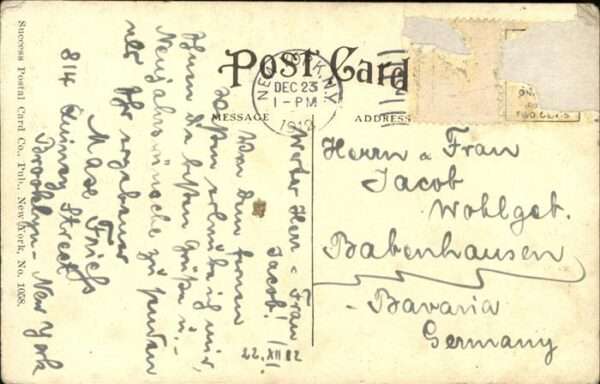 POST CARD
NEW YORK, N.Y.
DEC 23
1-PM
1912
MESSAGE
ADDRESS
TWO CENTS
Werter Herr u. Frau
Jacob!
22. XII 12
Von dem fernen
erlaube ich mir,
Ihnen die besten Grüße u.
Neujahrswünsche zu senden
als Ihr ergebener
814 Quincy Street
Brooklyn - New York
Herrn u Frau
Jacob
Wohlgeb.
Babenhausen
- Bavaria
Germany
Success Postal Card Co., Pub., New York, No. 1058.